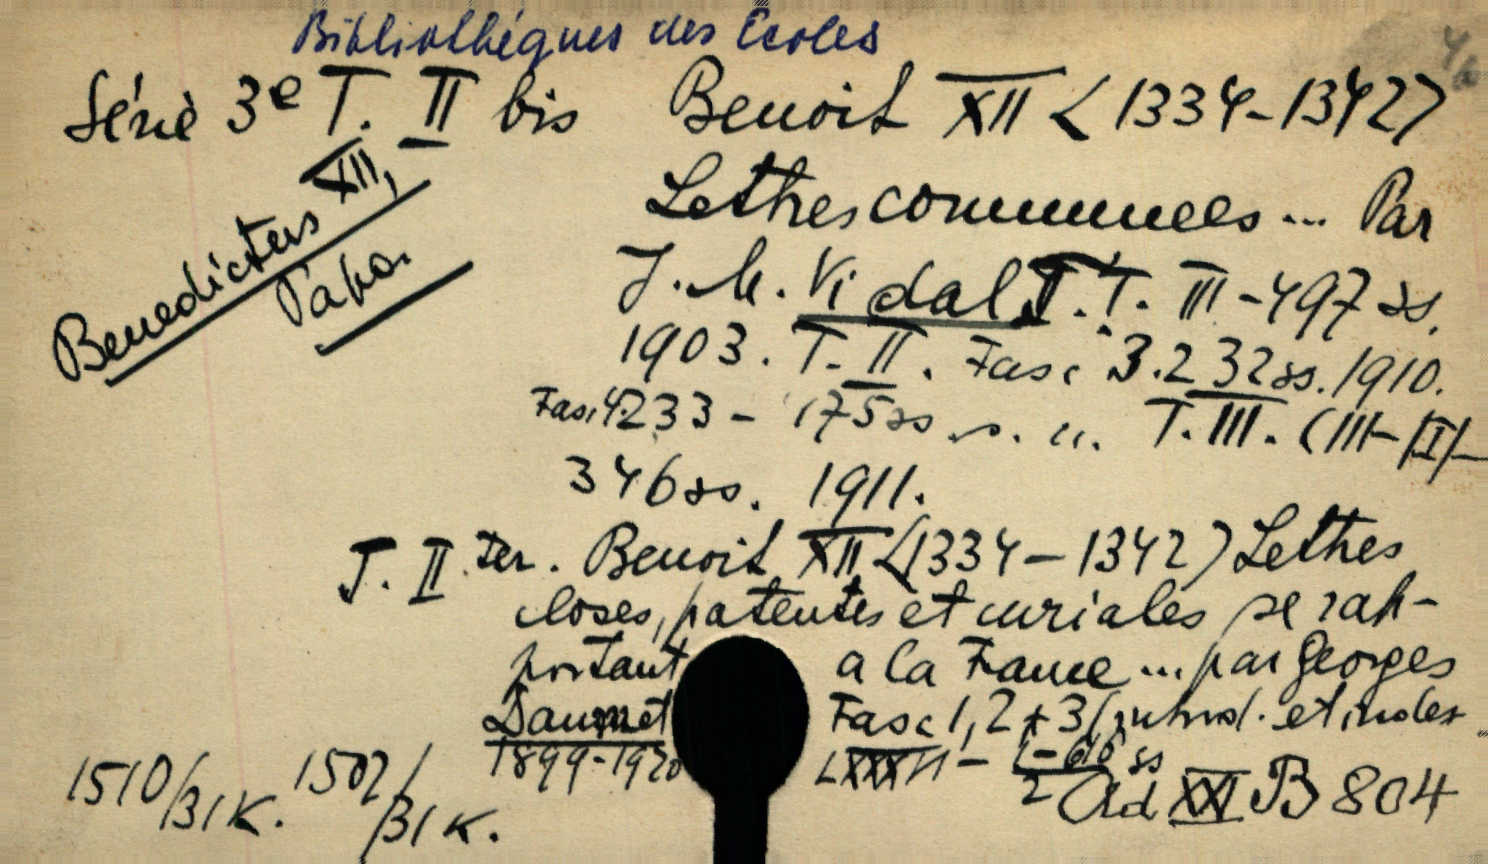 Bibliothéques des Écoles
Série 3e T. II bis Benoit XII <1334-1342>
Benedictus XII,
Pápa.
Lettres communes ... Par
J. M. Vidal T. T. III - 497 ss.
1903. T. II. Fasc 3. 232 ss. 1910.
Fasc 4. 233 - 175 ss T. III. (III-[I]-
346 ss. 1911.
T. II ter. Benoit XII <1334-1342> Lettres
closes, patentes et curiales se rap-
portant a la France ... par Georges
Daumet Fasc 1, 2 + 3 (introd. et index
1899-1920
1510/31K. 1502/31K.
Ad XXI B 804